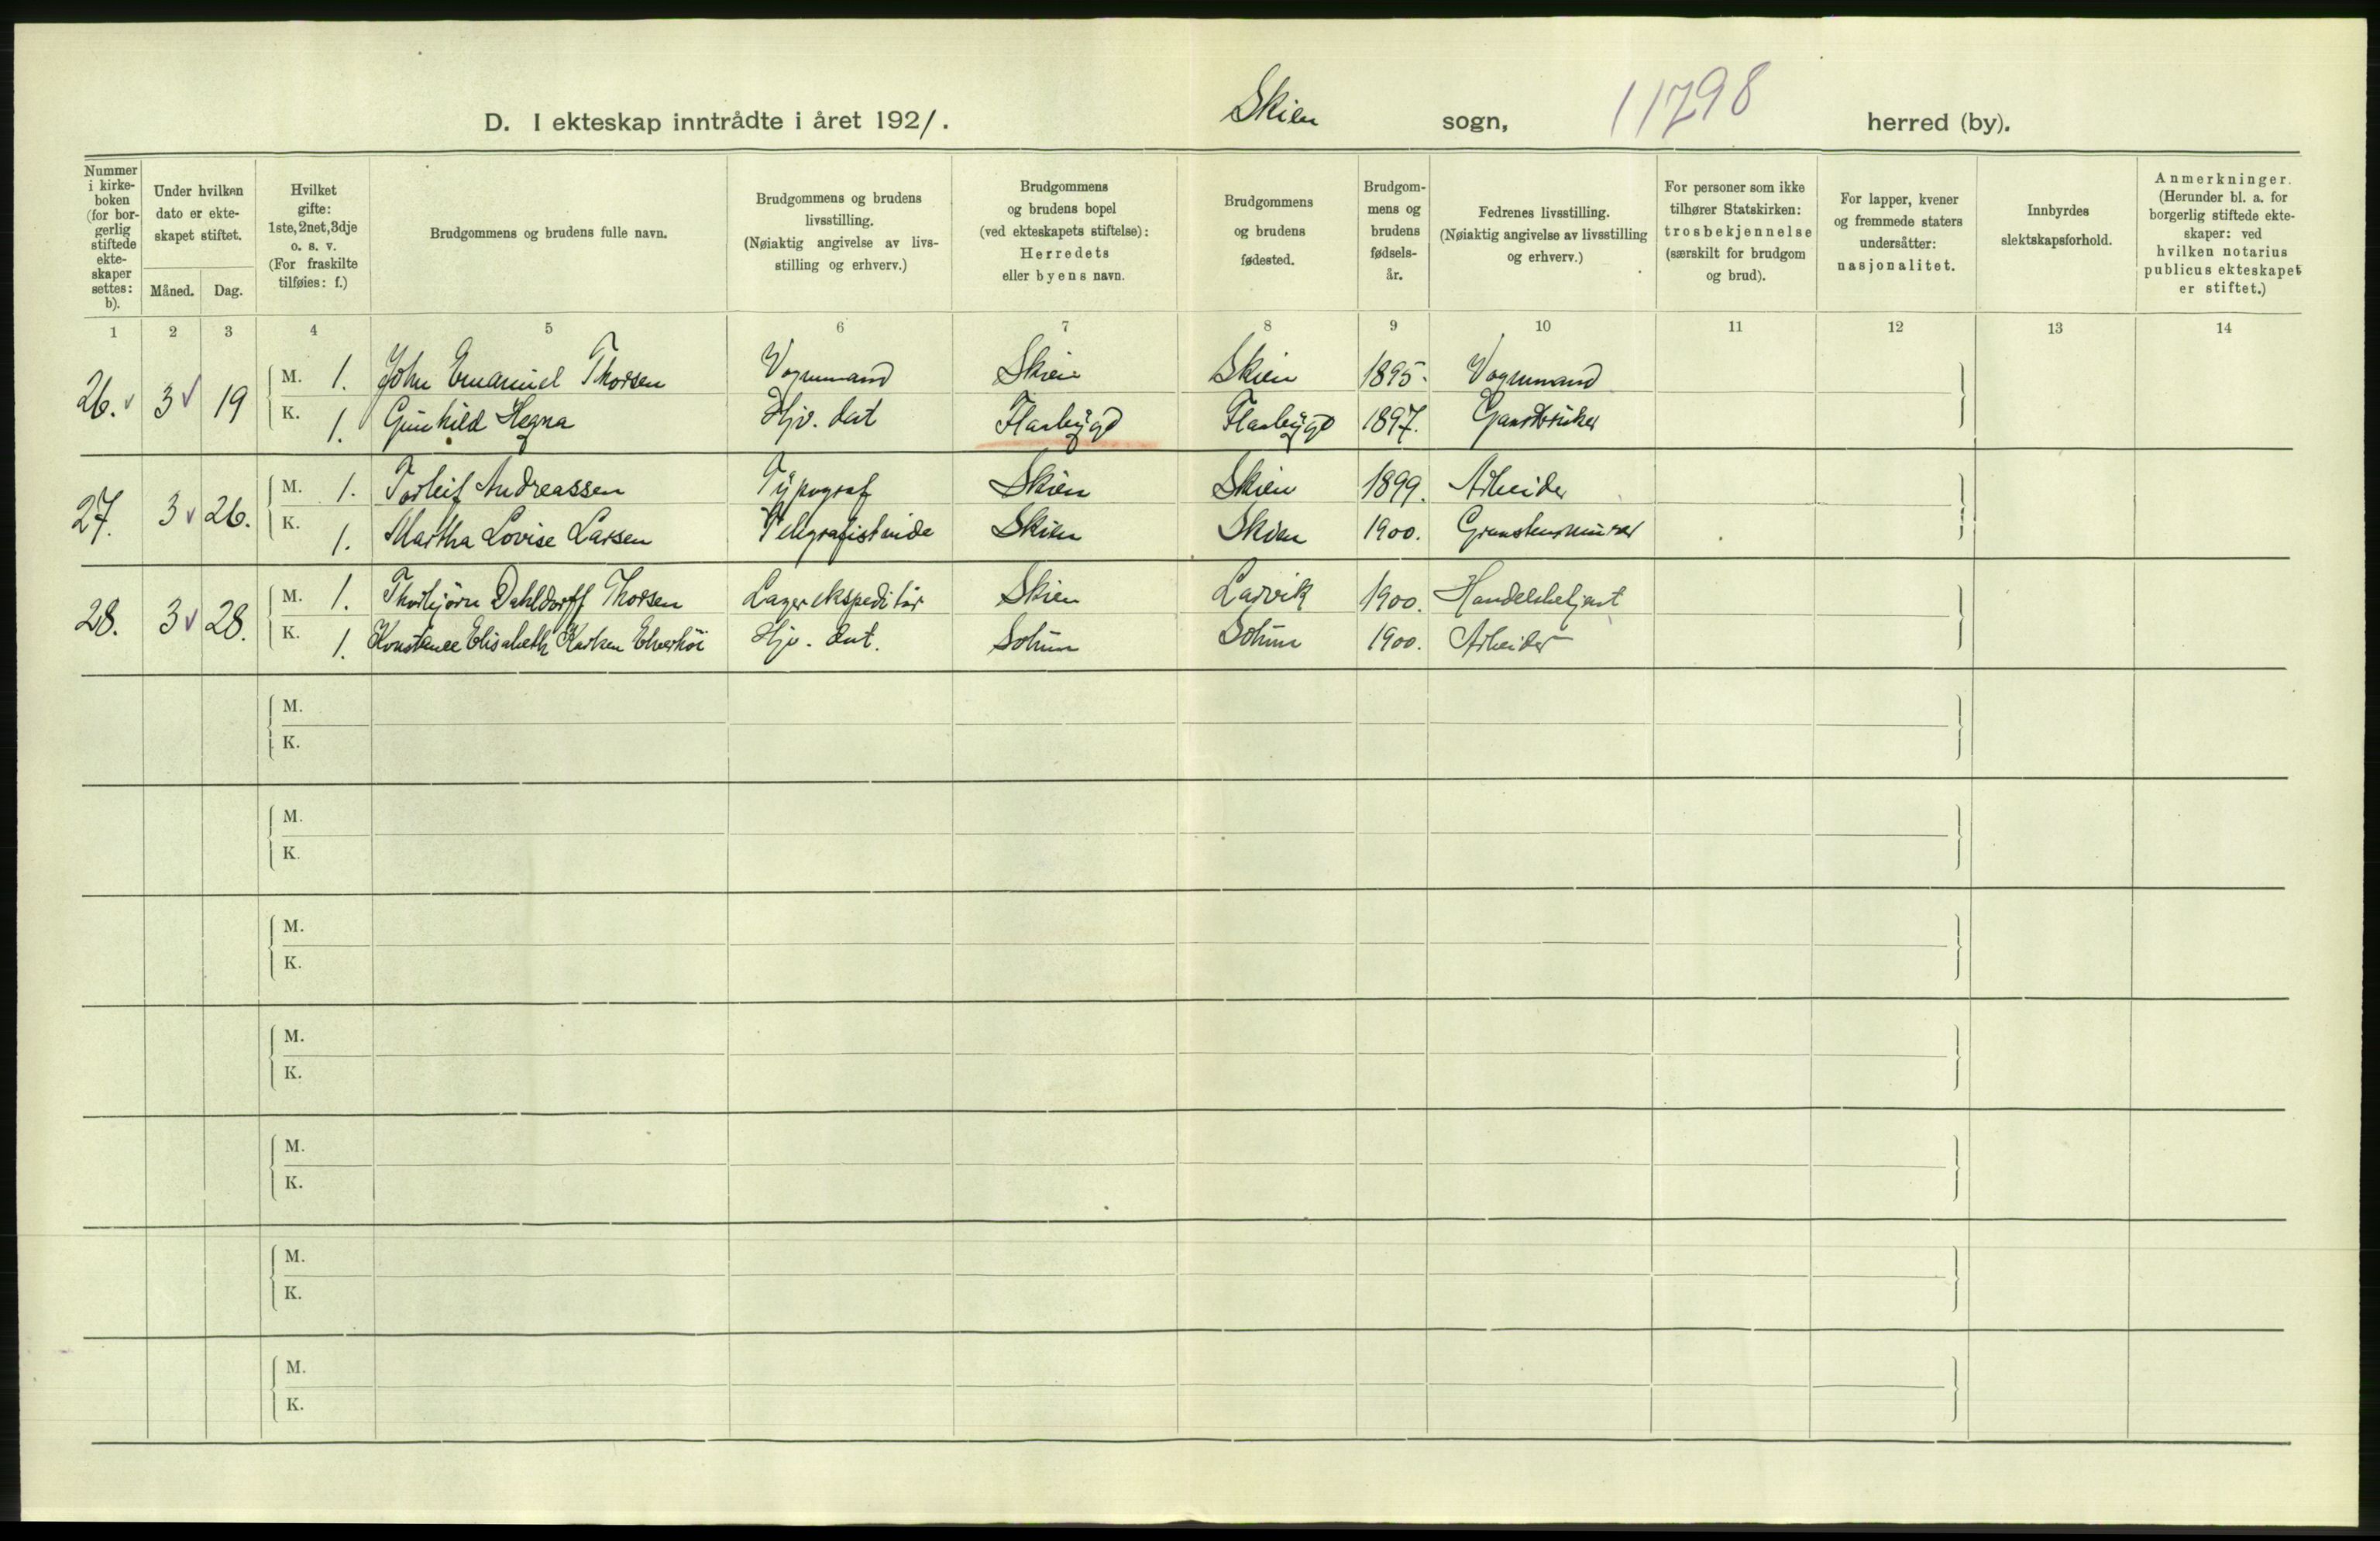 D. I ekteskap inntrådte i året 1921. Skien sogn, 11798 herred (by).
Nummer i kirke-boken (for bor-gerlig stiftede ekte-skaper settes: b).
Under hvilken dato er ekte-skapet stiftet.
Måned. Dag.
Hvilket gifte: 1ste, 2net, 3dje o. s. v. (For fraskilte tilføies: f.)
Brudgommens og brudens fulle navn.
Brudgommens og brudens livsstilling. (Nøiaktig angivelse av livs-stilling og erhverv.)
Brudgommens og brudens bopel (ved ekteskapets stiftelse): Herredets eller byens navn.
Brudgommens og brudens fødested.
Brudgom-mens og brudens fødsels-år.
Fedrenes livsstilling. (Nøiaktig angivelse av livsstilling og erhverv.)
For personer som ikke tilhører Statskirken: trosbekjennelse (særskilt for brudgom og brud).
For lapper, kvener og fremmede staters undersåtter: nasjonalitet.
Innbyrdes slektskapsforhold.
Anmerkninger. (Herunder bl. a. for borgerlig stiftede ekte-skaper: ved hvilken notarius publicus ekteskapet er stiftet.)
1 2 3 4 5 6 7 8 9 10 11 12 13 14
26. 3 19 M. 1. John Emanuel Thorsen Vognmand Skien Skien 1895. Vognmand
K. 1. Gunhild Hegna Hjv. dat Flarbygd Flarbygd 1897. Gaardbruker
27. 3 26. M. 1. Torleif Andreassen Typograf Skien Skien 1899. Arbeider
K. 1. Martha Lovise Larsen Telegrafistinde Skien Skien 1900. Graastensmurer
28. 3 28. M. 1. Thorbjørn Dahldorff Thorsen Lagerekspeditør Skien Larvik 1900. Handelsbetjent
K. 1. Konstance Elisabeth Karlsen Elverhøi Hjv. dat. Solum Solum 1900. Arbeider
M.
K.
M.
K.
M.
K.
M.
K.
M.
K.
M.
K.
M.
K.